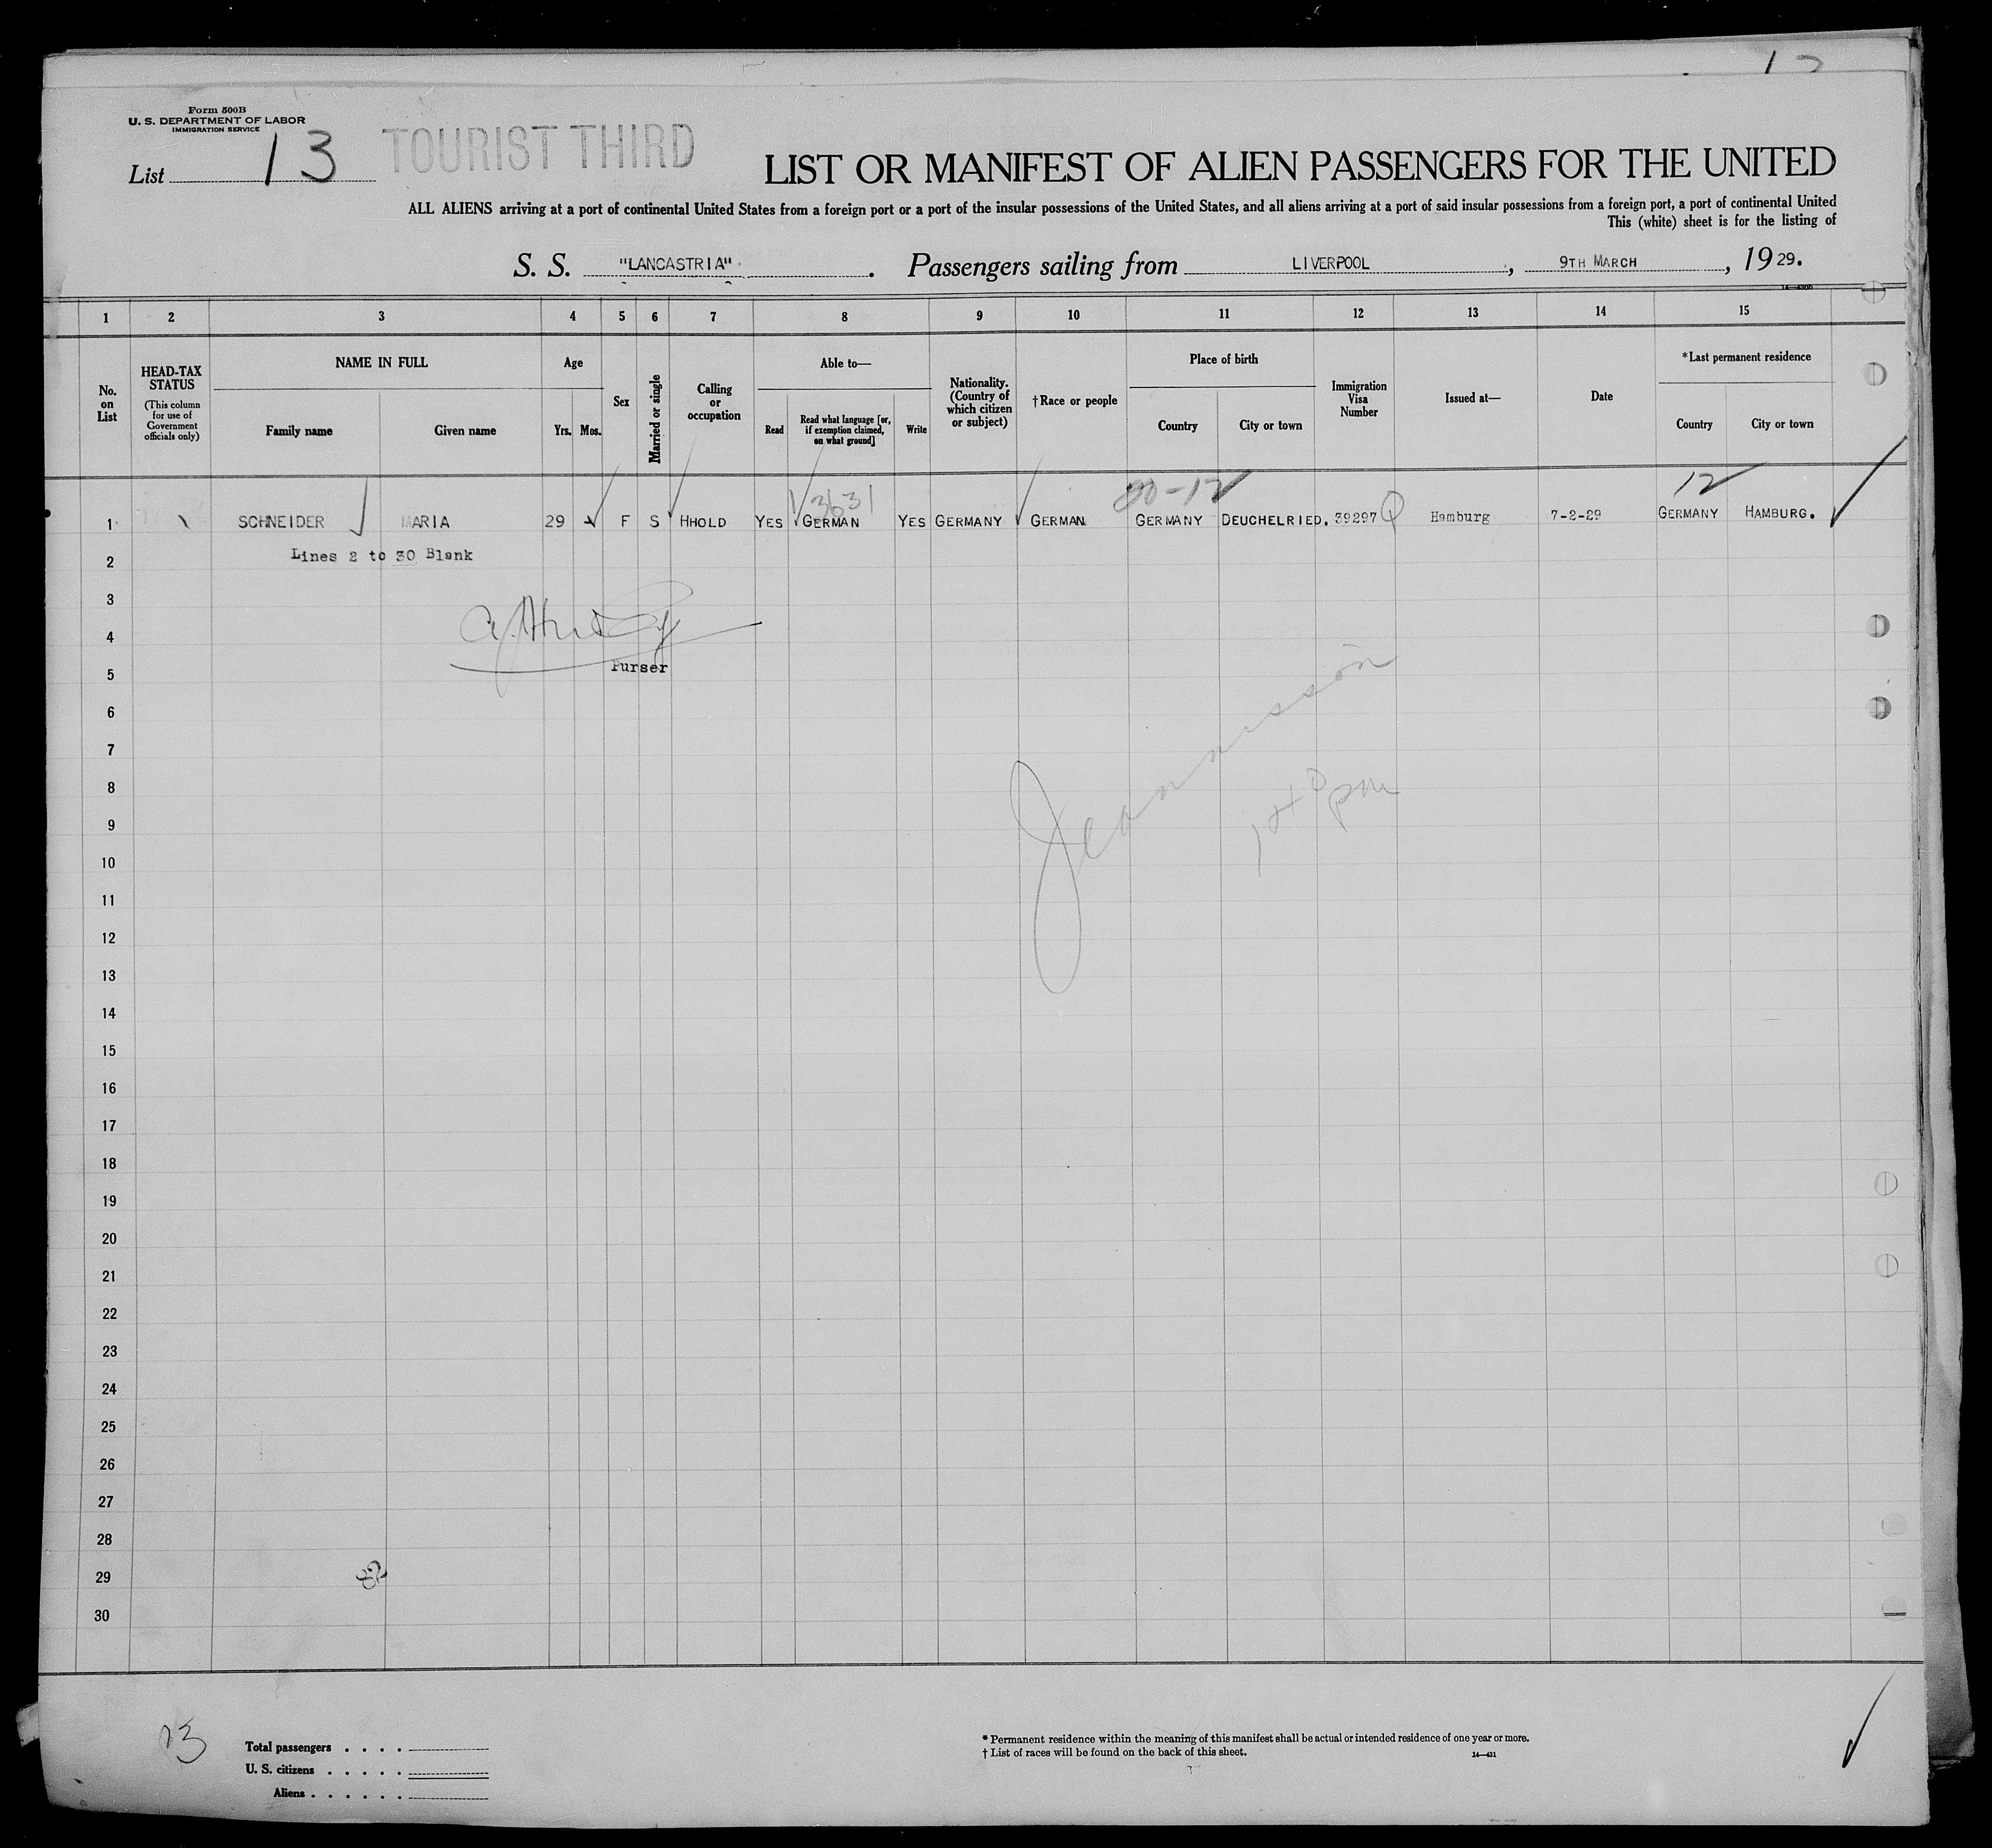 Form 500B
U. S. DEPARTMENT OF LABOR
IMMIGRATION SERVICE
List 13 TOURIST THIRD
LIST OR MANIFEST OF ALIEN PASSENGERS FOR THE UNITED
ALL ALIENS arriving at a port of continental United States from a foreign port or a port of the insular possessions of the United States, and all aliens arriving at a port of said insular possessions from a foreign port, a port of continental United
This (white) sheet is for the listing of
S. S. "LANCASTRIA". Passengers sailing from LIVERPOOL, 9TH MARCH, 1929.
1 2 3 4 5 6 7 8 9 10 11 12 13 14 15
No. on List
HEAD-TAX STATUS
(This column for use of Government officials only)
NAME IN FULL
Family name Given name
Age
Yrs. Mos.
Sex
Married or single
Calling or occupation
Able to—
Read
Read what language [or, if exemption claimed, on what ground]
Write
Nationality. (Country of which citizen or subject)
†Race or people
Place of birth
Country City or town
Immigration Visa Number
Issued at—
Date
*Last permanent residence
Country City or town
3631 12
1 SCHNEIDER MARIA 29 F S HHOLD YES GERMAN YES GERMANY GERMAN GERMANY DEUCHELRIED. 39297 Q Hamburg 7-2-29 GERMANY HAMBURG.
2 Lines 2 to 30 Blank
3
4
5 Purser
6
7
8
9
10
11
12
13
14
15
16
17
18
19
20
21
22
23
24
25
26
27
28
29
30
13
Total passengers . . . .
U. S. citizens . . . . .
Aliens . . . . . .
* Permanent residence within the meaning of this manifest shall be actual or intended residence of one year or more.
† List of races will be found on the back of this sheet.
14—431